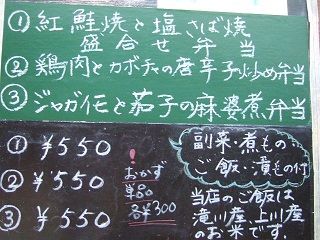 ① 紅鮭焼と塩さば焼
盛合せ弁当
② 鶏肉とカボチャの唐辛子炒め弁当
③ ジャガイモと茄子の麻婆煮弁当
① ¥550
② ¥550
③ ¥550
!
おかず
単80
各半300
副菜・煮もの・
ご飯・漬もの付
当店のご飯は
滝川産上川産
のお米です。